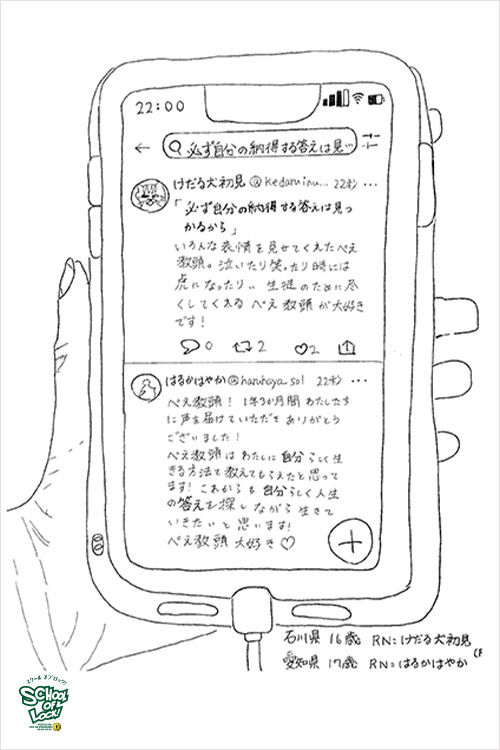 22:00
必ず自分の納得する答えは見…
けだる犬初見 @kedaruinu... 22秒 ...
「必ず自分の納得する答えは見っ
かるから」
いろんな表情を見せてくれたぺえ
教頭。泣いたり笑ったり時には
虎になったり。生徒のために尽
くしてくれる ぺえ教頭が大好き
です!
0 2 2
はるかはやか @haruhaya_sol 22秒 ...
ぺえ教頭! 1年3か月間 わたしたち
に声を届けていただき ありがとう
ございました!
ぺえ教頭は わたしに 自分らしく生
きる方法を教えてもらえたと思って
ます! これからも 自分らしく人生
の答えを探しながら 生きて
いきたいと思います!
ぺえ教頭 大好き♡
石川県 16歳 RN=けだる犬初見
愛知県 17歳 RN=はるかはやか
スクール オブ ロック!
SCHOOL OF LOCK!